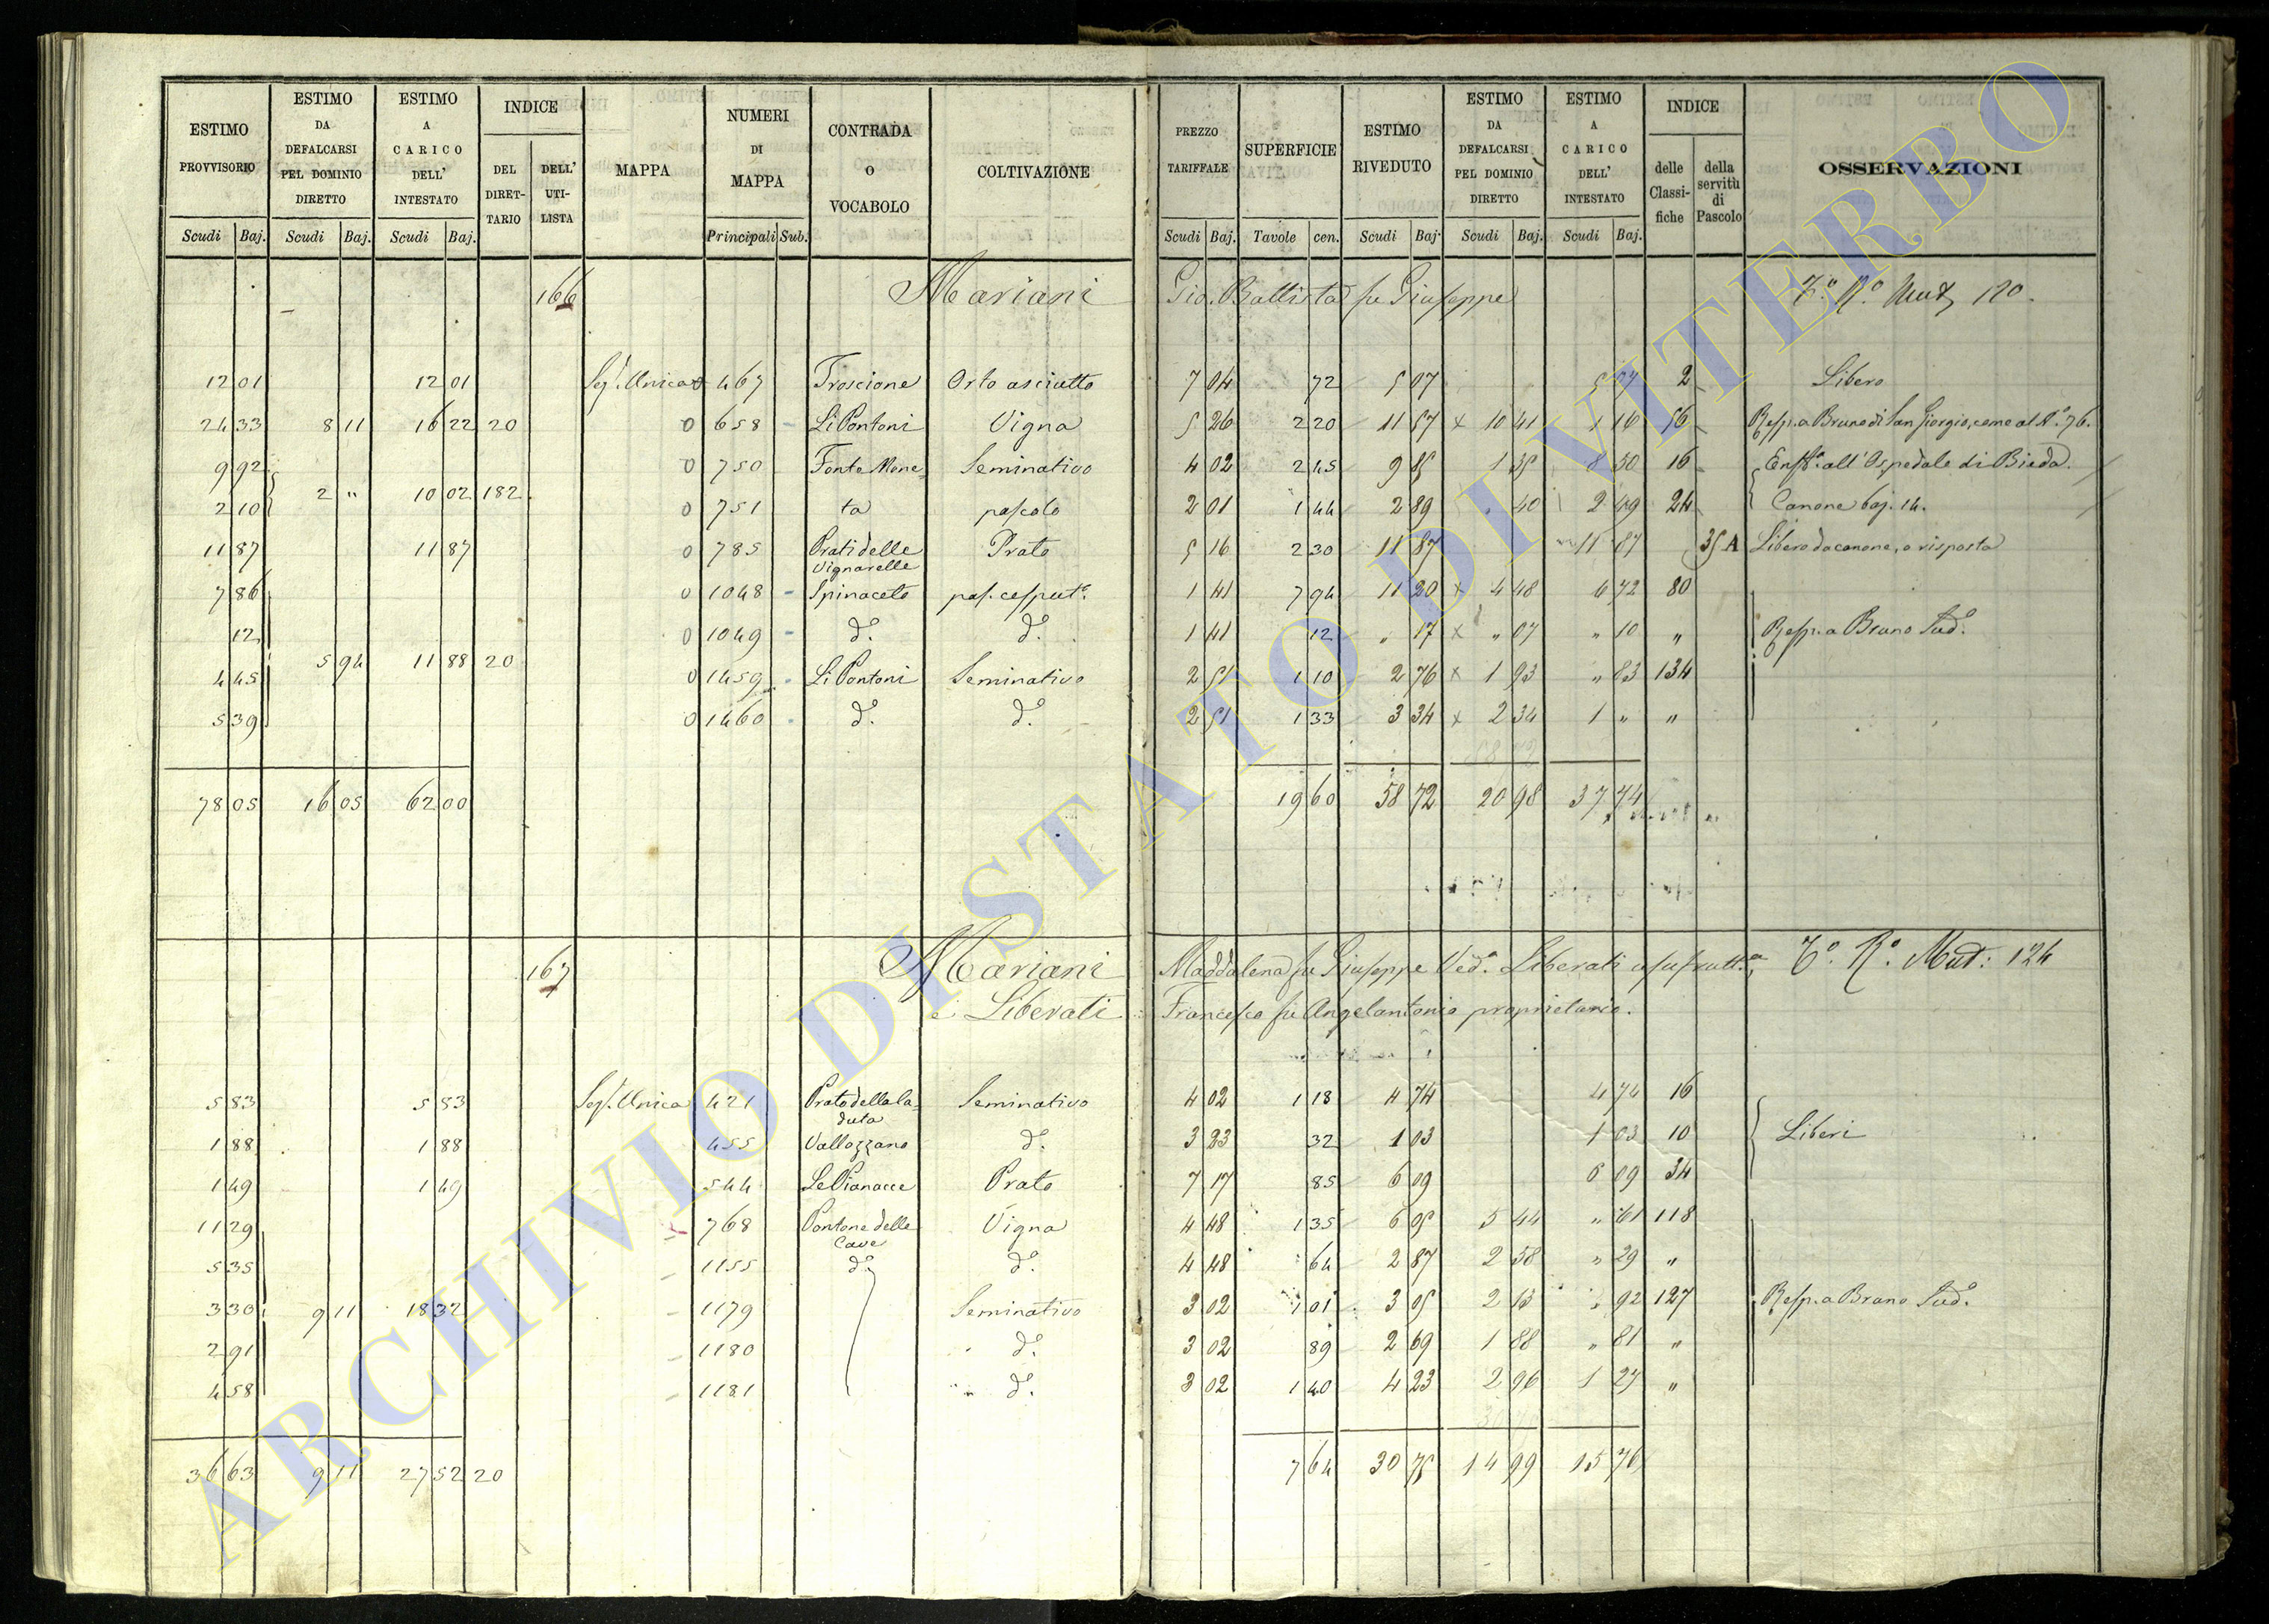 ESTIMO PROVVISORIO | ESTIMO DA DEFALCARSI PEL DOMINIO DIRETTO | ESTIMO A CARICO DELL' INTESTATO | INDICE DEL DIRETTARIO | DELL' UTILISTA | MAPPA | NUMERI DI MAPPA | CONTRADA O VOCABOLO | COLTIVAZIONE | PREZZO TARIFFALE | SUPERFICIE | ESTIMO RIVEDUTO | ESTIMO DA DEFALCARSI PEL DOMINIO DIRETTO | ESTIMO A CARICO DELL' INTESTATO | INDICE delle Classifiche | della servitù di Pascolo | OSSERVAZIONI
Scudi Baj. | Scudi Baj. | Scudi Baj. | Principali Sub. | Scudi Baj. | Tavole cen. | Scudi Baj. | Scudi Baj. | Scudi Baj.
166 Mariani Gio. Battista fu Giuseppe T.º R.º Mut. 120.
12 01 | 12 01 | Sez. Unica 0 467 | Troscione | Orto asciutto | 7 04 | 72 | 5 07 | 5 07 | 2 | Libero
24 33 | 8 11 | 16 22 | 20 | 0 658 | Li Pontoni | Vigna | 5 26 | 2 20 | 11 57 | x 10 41 | 1 16 | 56 | Resp. a Bruno di San Giorgio, come al N.º 76.
9 92 | 0 750 | Fonte Mone | Seminativo | 4 02 | 2 45 | 9 85 | 1 35 | 8 50 | 16 | Enf.ª all'Ospedale di Bieda.
2 " | 10 02 | 182
2 10 | 0 751 | ta | pascolo | 2 01 | 1 44 | 2 89 | 40 | 2 49 | 24 | Canone baj. 14.
11 87 | 11 87 | 0 785 | Prati delle Vignarelle | Prato | 5 16 | 2 30 | 11 87 | 11 87 | 35 A | Libero da canone, o risposta
7 86 | 0 1048 | Spinaceto | pas. cesput.º | 1 41 | 7 94 | 11 20 | x 4 48 | 6 72 | 80
12 | 0 1049 | dº. | dº. | 1 41 | 12 | " 17 | x " 07 | " 10 | " | Resp. a Bruno Sud.º
5 94 | 11 88 | 20
4 45 | 0 1459 | Li Pontoni | Seminativo | 2 51 | 1 10 | 2 76 | x 1 93 | " 83 | 134
5 39 | 0 1460 | dº. | dº. | 2 51 | 1 33 | 3 34 | x 2 34 | 1 " | "
78 05 | 16 05 | 62 00 | 19 60 | 58 72 | 20 98 | 37 74
167 Mariani Maddalena fu Giuseppe Ved.ª Liberati usufrutt.ª T.º R.º Mut: 124
e Liberati Francesco fu Angelantonio proprietario.
5 83 | 5 83 | Sez. Unica 421 | Prato della la=data | Seminativo | 4 02 | 1 18 | 4 74 | 4 74 | 16
1 88 | 1 88 | 455 | Vallozzano | dº. | 3 23 | 32 | 1 03 | 1 03 | 10 | Liberi
1 49 | 1 49 | 544 | Le Pianacce | Prato | 7 17 | 85 | 6 09 | 6 09 | 34
11 29 | 768 | Pontone delle Cave | Vigna | 4 48 | 1 35 | 6 05 | 5 44 | " 61 | 118
5 35 | 1155 | dº. | dº. | 4 48 | 64 | 2 87 | 2 58 | " 29 | "
3 30 | 9 11 | 18 32 | 1179 | Seminativo | 3 02 | 1 01 | 3 05 | 2 13 | " 92 | 127 | Resp. a Bruno Sud.º
2 91 | 1180 | dº. | 3 02 | 89 | 2 69 | 1 88 | " 81 | "
4 58 | 1181 | dº. | 3 02 | 1 40 | 4 23 | 2 96 | 1 27 | "
36 63 | 9 11 | 27 52 | 20 | 7 64 | 30 75 | 14 99 | 15 76
ARCHIVIO DI STATO DI VITERBO